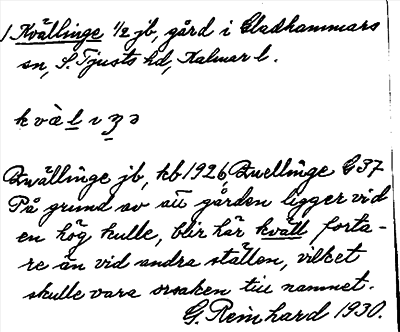 1 Kvällinge 1/2 jb, gård i Gladhammars
sn, S. Tjusts hd, Kalmar l.
kvὲlıŋə
Qwällinge jb, kb 1926, Quellinge G37
På grund av att gården ligger vid
en hög kulle, blir här kväll forta-
re än vid andra ställen, vilket
skulle vara orsaken till namnet.
G. Reinhard 1930.